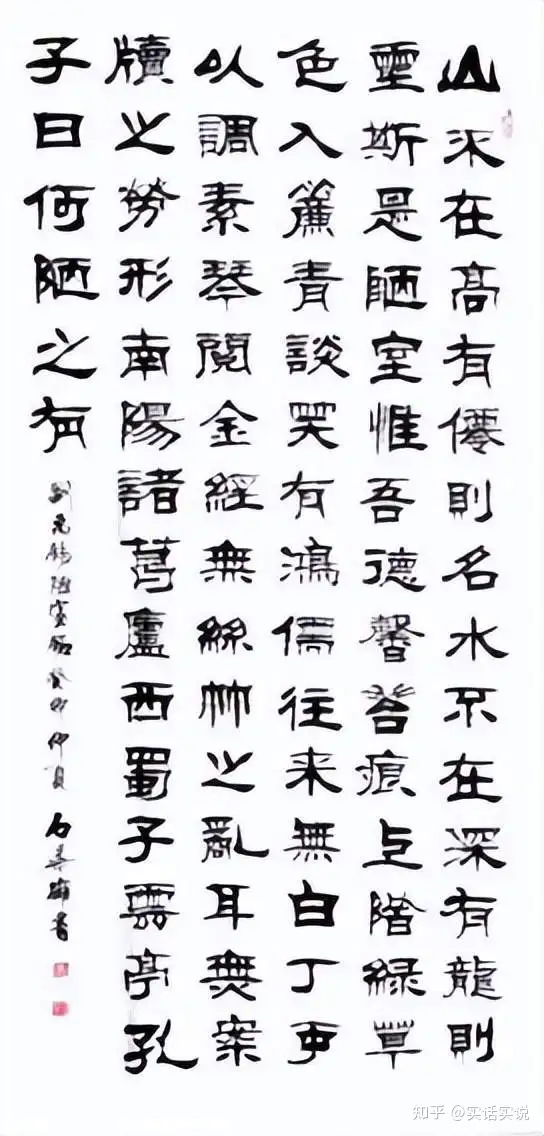 山不在高有僊則名水不在深有龍則
靈斯是陋室惟吾德馨苔痕上階綠草
色入簾青談笑有鴻儒往来無白丁可
以調素琴閱金經無絲竹之亂耳無案
牘之勞形南陽諸葛廬西蜀子雲亭孔
子曰何陋之有
劉禹錫陋室銘癸卯仲夏
書
知乎 @实话实说